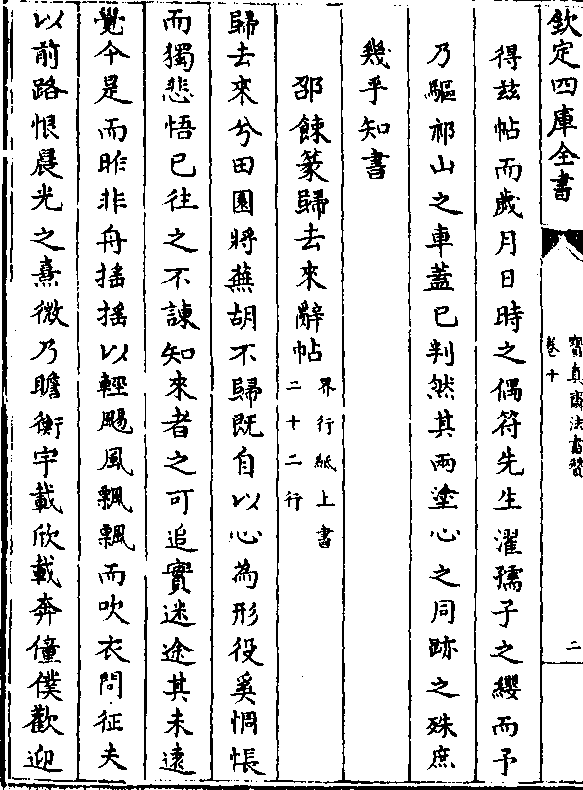 欽定四庫全書
寳真齋法書贊
卷十
二
得兹帖而歲月日時之偶符先生濯孺子之纓而予
乃驅祁山之車蓋已判然其兩塗心之同跡之殊庶
幾乎知書
邵餗篆歸去來辭帖
界行紙上書
二十二行
歸去來兮田園將蕪胡不歸既自以心為形役奚惆悵
而獨悲悟已往之不諫知來者之可追實迷途其未遠
覺今是而昨非舟揺揺以輕颺風飄飄而吹衣問征夫
以前路恨晨光之熹微乃瞻衡宇載欣載奔僮僕歡迎